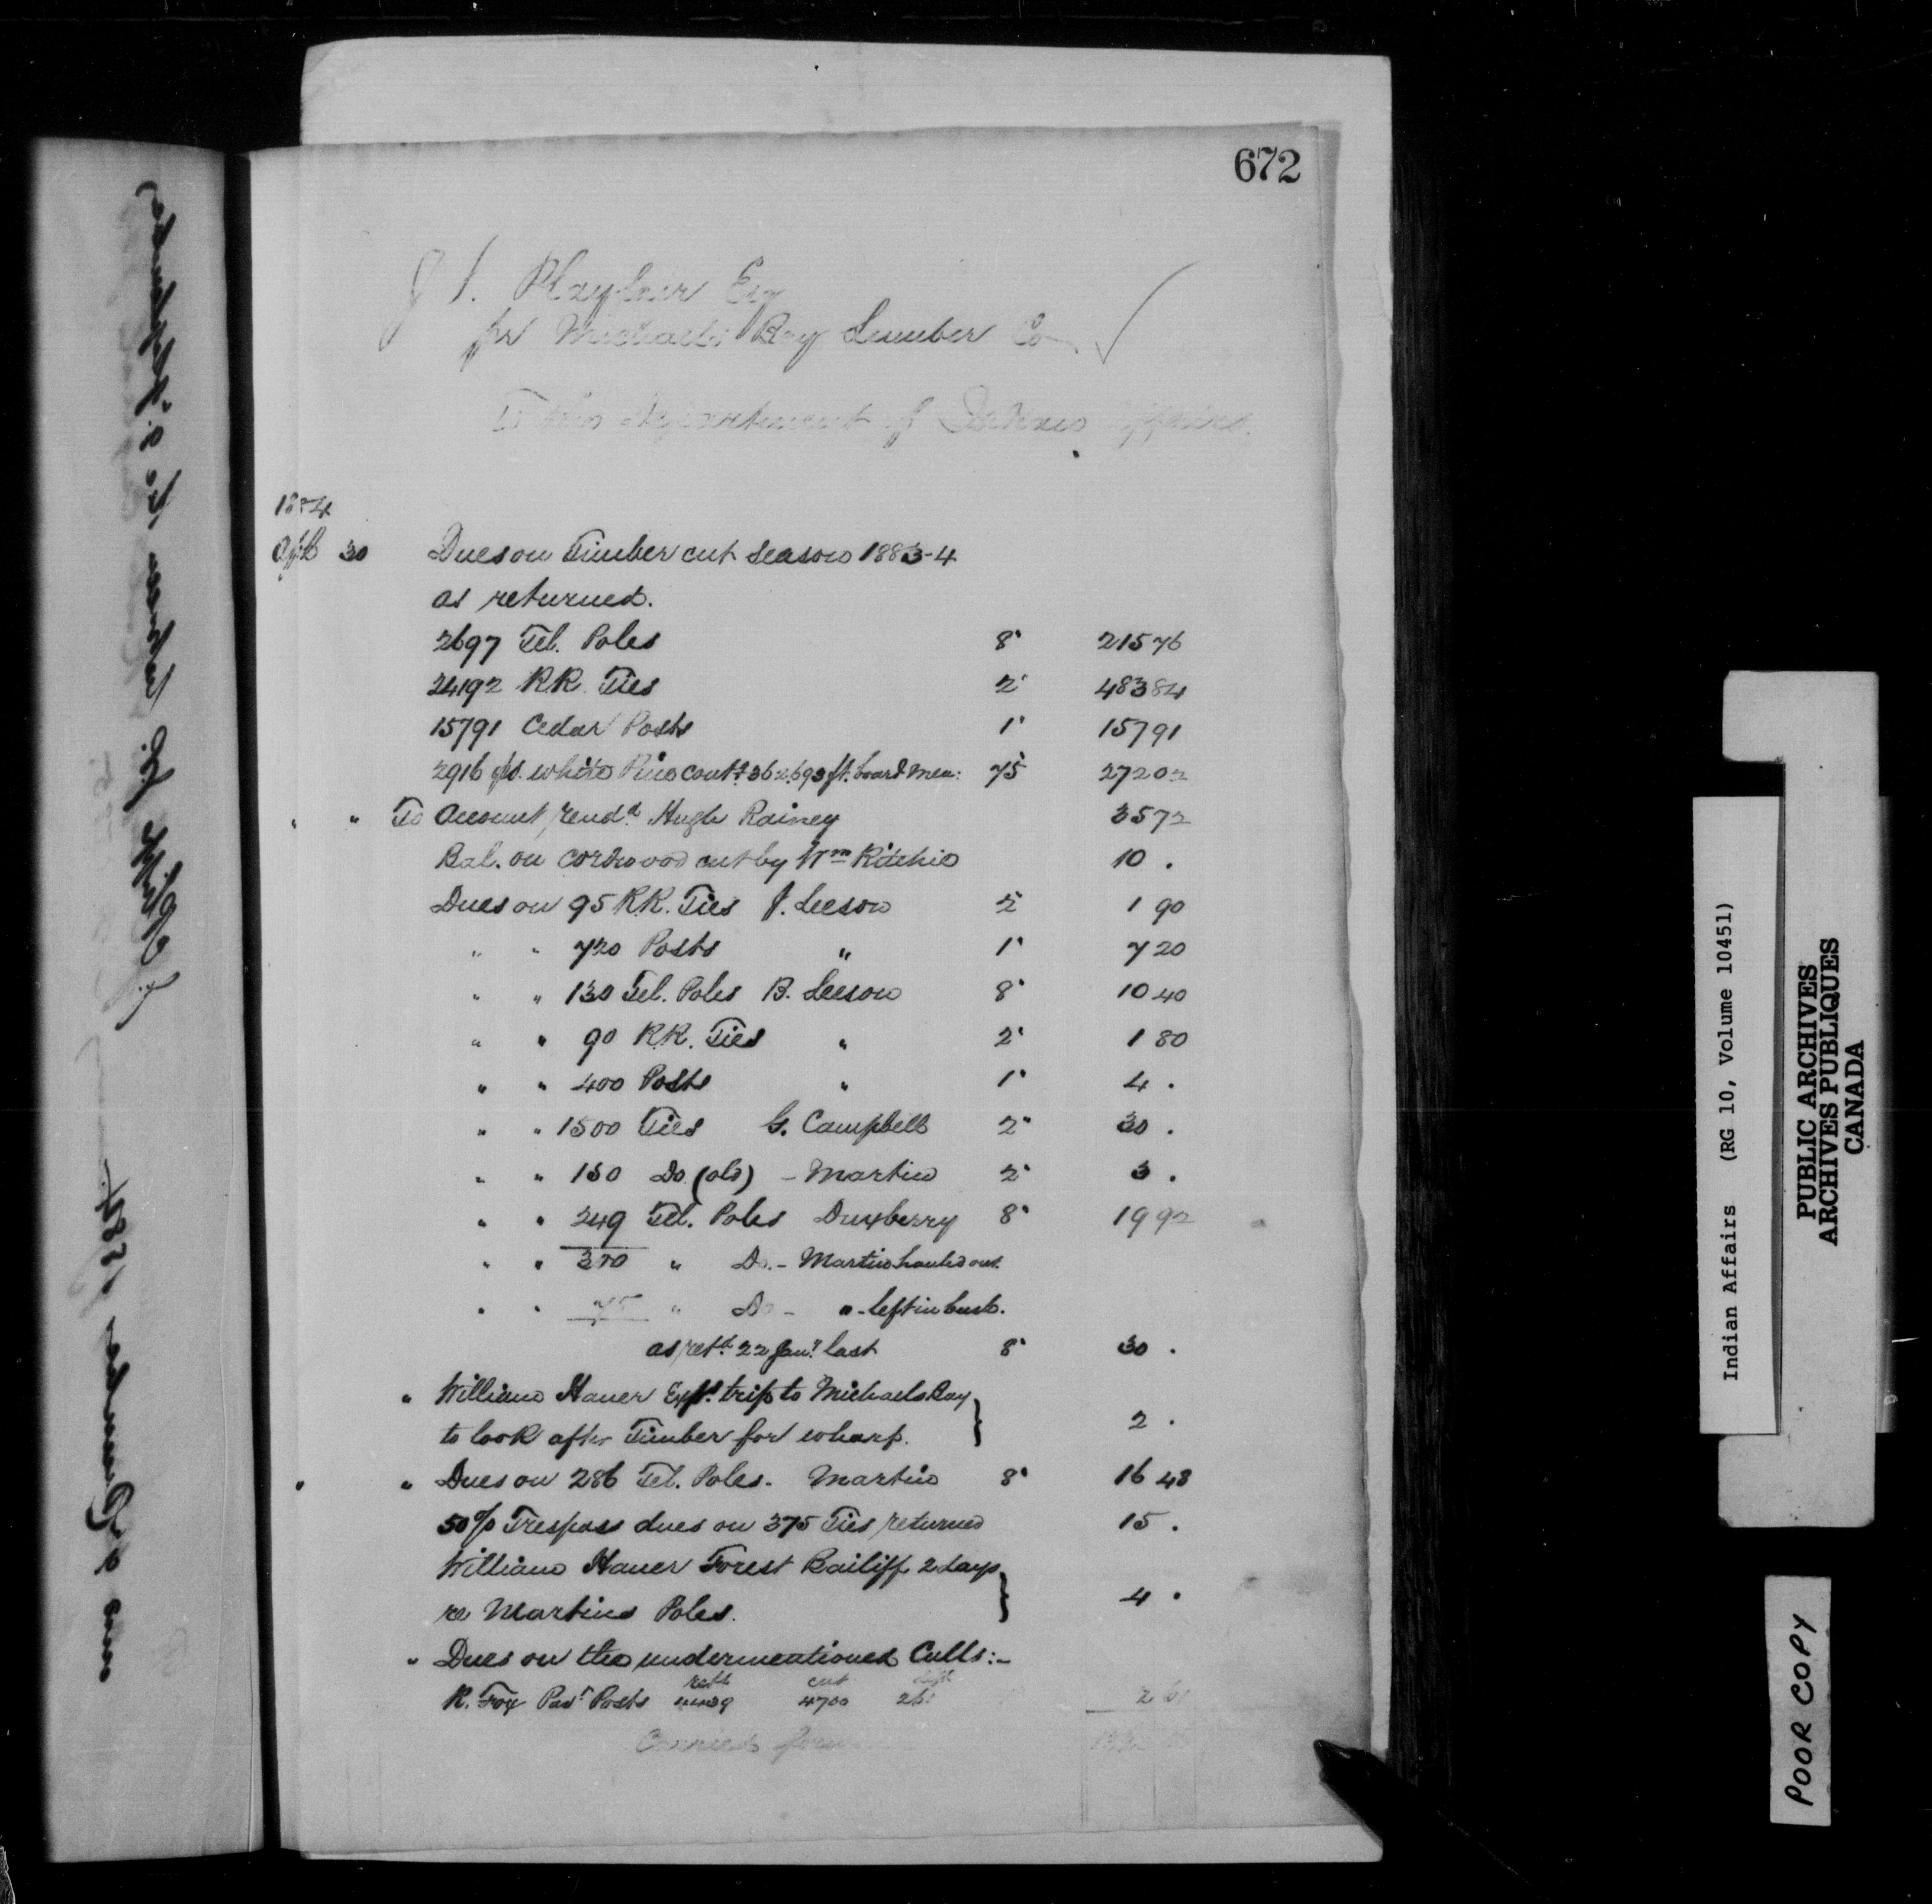 672
J. S. Playfair Esq
pr Michaels Bay Lumber Co
To the Department of Indian Affairs.
1884
Apl 30 Dues on Timber cut season 1883-4
as returned.
2697 Tel. Poles 8" 215 76
24192 R.R. Ties 2" 483 84
15791 Cedar Posts 1" 157 91
2916 pcs. white Pine cont.g 362,693 ft. board mea: 75 272 02
" " To account rendd. Hugh Rainey 35 72
Bal. on cordwood cut by Wm Ritchie 10 .
Dues on 95 R.R. Ties J. Leeson 2 1 90
" " 720 Posts " 1" 7 20
" " 130 Tel. Poles B. Leeson 8" 10 40
" " 90 R.R. Ties " 2" 1 80
" " 400 Posts " 1" 4 .
" " 1500 Ties G. Campbell 2" 30 .
" " 150 Do. (old) - Martin 2" 3 .
" " 249 Tel. Poles Duxberry 8" 19 92
" " 300 " Do. - Martin hauled out.
" " 75 " Do - " - left in bush.
as retd. 22 Jany. last 8" 30 .
" William Haner Exps. trip to Michaels Bay
to look after Timber for wharf. } 2 .
" " Dues on 286 Tel. Poles. Martin 8" 16 48
50% Trespass dues on 375 Ties returned 15 .
William Haner Forest Bailiff 2 days
re Martins Poles. } 4 .
" Dues on the undermentioned Culls:-
retd cut
R. Fox Posts 4439 4700 261 2 61
Carried forward
Indian Affairs (RG 10, Volume 10451)
PUBLIC ARCHIVES
ARCHIVES PUBLIQUES
CANADA
POOR COPY